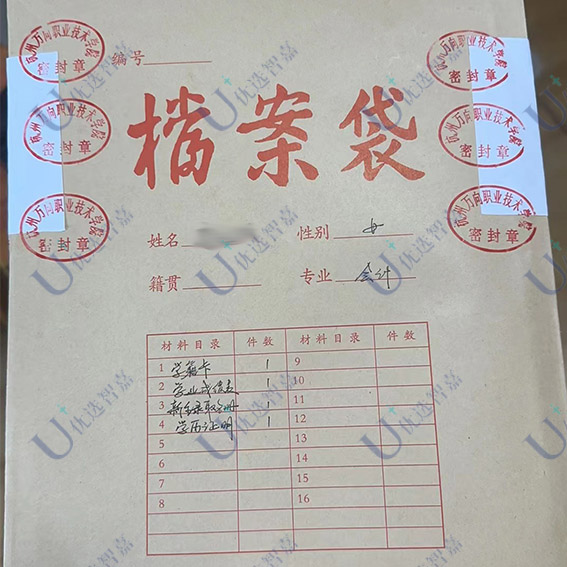 杭州万向职业技术学院
密封章
杭州万向职业技术学院
密封章
编号
杭州万向职业技术学院
密封章
杭州万向职业技术学院
密封章
檔案袋
杭州万向职业技术学院
密封章
杭州万向职业技术学院
密封章
姓名 性别 女
籍贯 专业 会计
材料目录 件数 材料目录 件数
1 学籍卡 1 9
2 学业成绩表 1 10
3 新生录取名册 1 11
4 学历证明 1 12
5 13
6 14
7 15
8 16
U+优选智嘉